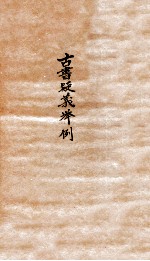 古書疑義舉例